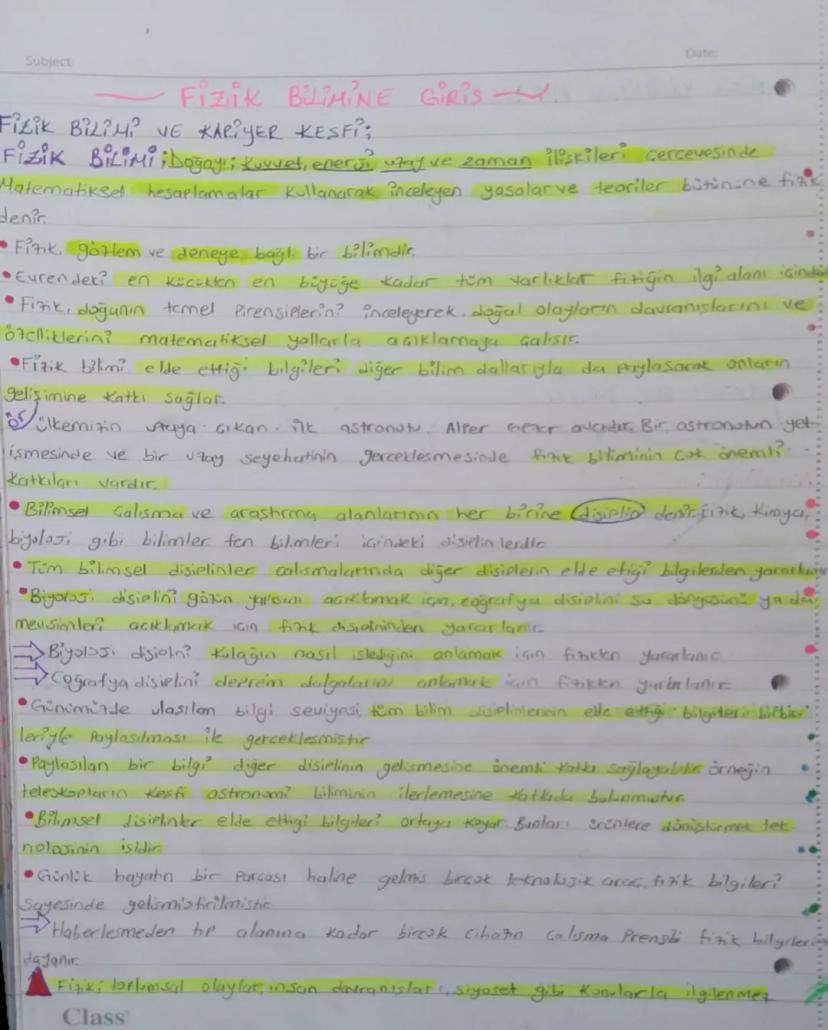 Subject:
Date:
FİZİK BİLİMİNE GİRİŞ
FİZİK BİLİMİ VE KARİYER KESFİ;
FİZİK BİLİMİ; Doğayı; kuvvet, enerji uzay ve zaman ilişkileri cercevesinde
Matematiksel hesaplamalar kullanarak inceleyen yasalar ve teoriler bütününe fizik
denir.
• Fizik, gözlem ve deneye bağlı bir bilimdir.
• Evrendeki en küçükten en büyüğe kadar tüm varlıklar fiziğin ilgi alanı içindedir
• Fizik, doğanın temel Pirensiplerini inceleyerek, doğal olayların davranışlarını ve
özelliklerini matematiksel yollarla açıklamaya çalışır.
• Fizik bilimi elde ettiği bilgileri diğer bilim dallarıyla da paylaşarak onların
gelişimine katkı sağlar.
ör/ ülkemizin uzaya çıkan ilk astronotu Alper Gezeravcıdır. Bir astronotun yet
işmesinde ve bir uzay seyehatinin gerceklesmesinde fizik biliminin çok önemli
katkıları vardır.
• Bilimsel Calışma ve araştırma alanlarının her birine disiplin denir. fizik, Kimya,
biyoloji gibi bilimler fen bilimleri içindeki disiplinlerdir
• Tüm bilimsel disiplinler calısmalarında diğer disiplerin elde etiği bilgilerden yararlanır
• Biyoloji disiplini gözün yapısını acıklamak için, coğrafya disiplini su döngüsünü ya da
mevsimleri acıklamak icin fizik disiplninden yararlanır.
⇒ Biyoloji disiplni Kulağın nasıl işlediğini anlamak için fizikten yararlanır
⇒ Coğrafya disiplini deprem dalgalarını anlamak için fizikten yararlanır
• Günümüzde ulaşılan bilgi seviyesi, tüm bilim disiplinlerinin elde ettiği bilgileri birbir
leriyle Paylaşılması ile gerceklesmistir
• Paylaşılan bir bilgi diğer disiplinin gelişmesine önemli katkı sağlayabilir örneğin
teleskopların Kesfi astronomi biliminin ilerlemesine katkıda bulunmuştur.
• Bilimsel disiplinler elde ettiği bilgileri ortaya koyar. Bunları ürünlere dönüştürmek tek
nolojinin işidir.
• Günlük hayatın bir Parcası haline gelmiş bircok teknolojik arac, fizik bilgileri
sayesinde gelismistirilmistir
⇒ Haberlesmeden tıp alanına kadar bircok cihazın calışma Prensibi fizik bilgilerine
dayanır.
Fizik; toplumsal olaylar, insan davranışları, siyaset gibi konularla ilgilenmez
Class